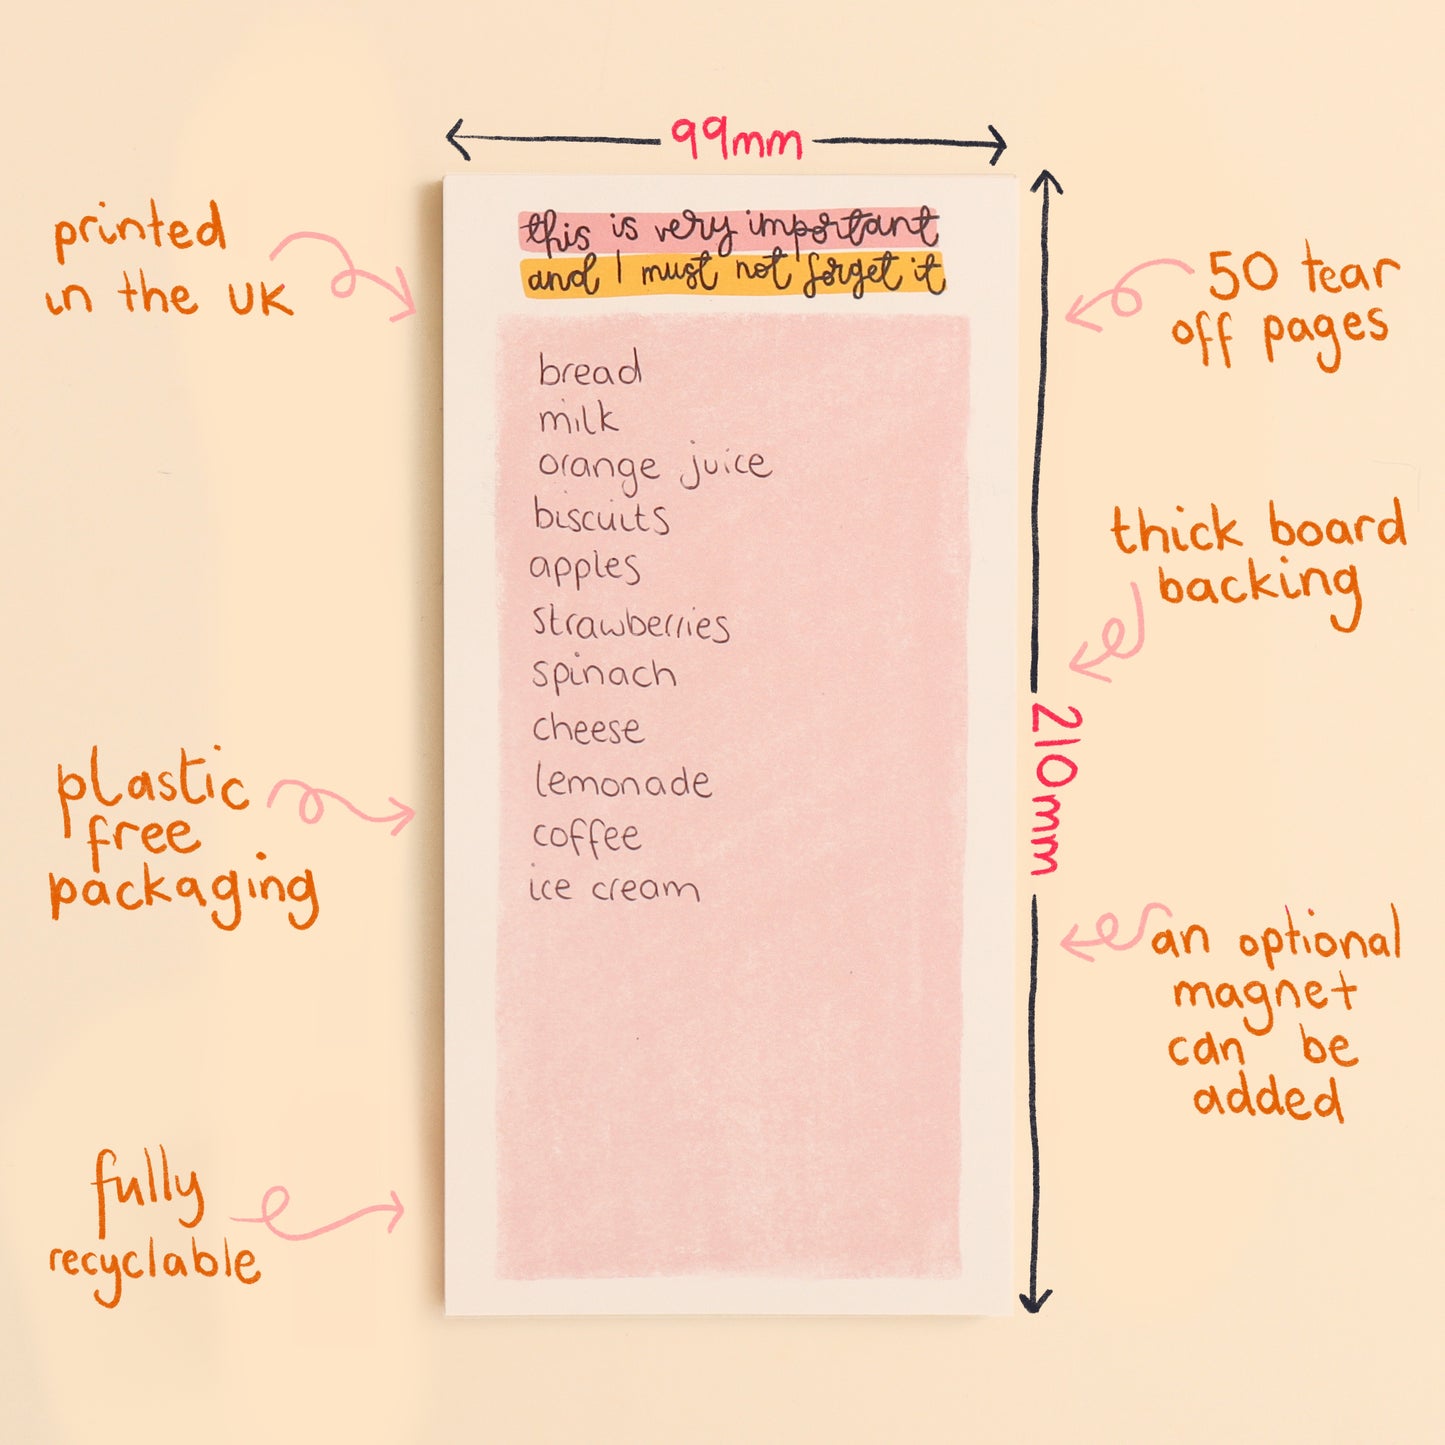 99mm
this is very important
and I must not forget it
bread
milk
orange juice
biscuits
apples
strawberries
spinach
cheese
lemonade
coffee
ice cream
printed
in the UK
plastic
free
packaging
fully
recyclable
50 tear
off pages
thick board
backing
210mm
an optional
magnet
can be
added